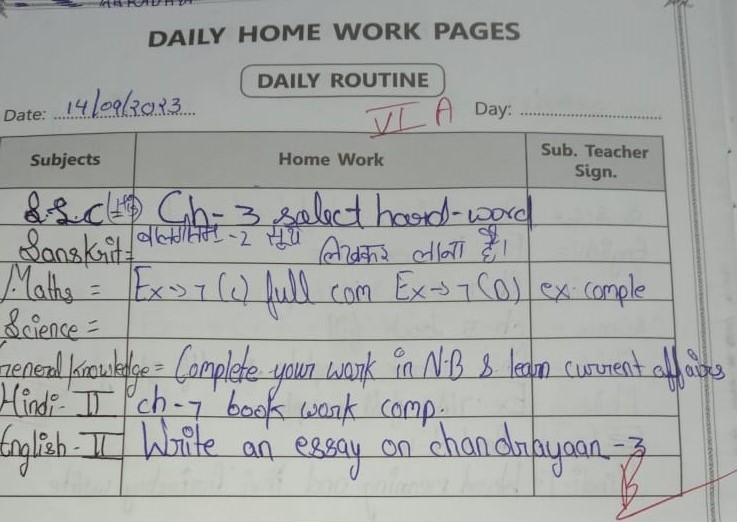 DAILY HOME WORK PAGES
DAILY ROUTINE
Date: 14/09/2023 VI A Day:
Subjects Home Work Sub. Teacher Sign.
S.S.C Ch-3 select hard-word
Sanskrit= -2 लिखकर लाना है।
Maths = Ex→7(C) full com Ex→7(D) ex comple
Science =
General Knowledge = Complete your work in N.B & learn current affairs
Hindi-II ch-7 book work comp.
English-II Write an essay on chandrayaan-3